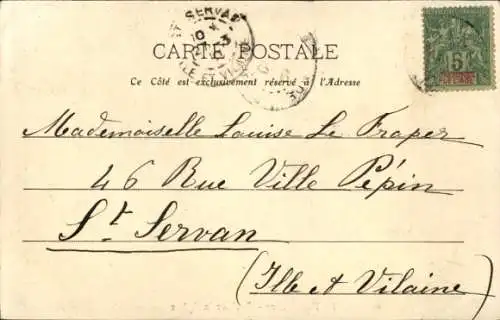 ST SERVAN
ILLE ET VILAINE
CARTE POSTALE
Ce Côté est exclusivement réservé à l'Adresse
5
Mademoiselle Louise Le Fraper
46 Rue Ville Pépin
St. Servan
(Ille et Vilaine)